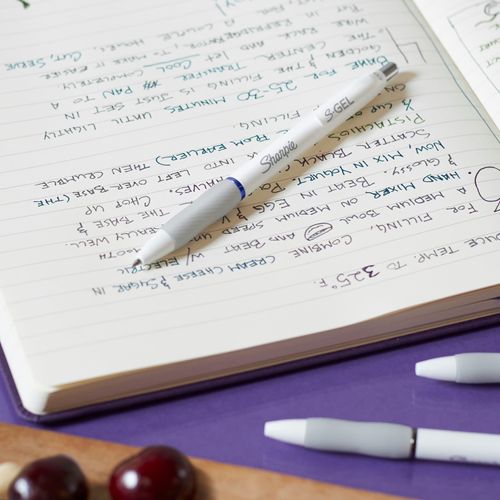 DUCE TEMP. TO 325° F.
FOR FILLING, COMBINE CREAM CHEESE & SUGAR IN
A MEDIUM BOWL AND BEAT W/ ELECTRIC
HAND MIXER ON MEDIUM SPEED
& GLOSSY. BEAT IN EGG & REALLY WELL.
NOW, MIX IN YOGURT, & THE BASE
SCATTER BLACK HALVES. CHOP UP
PISTACHIOS INTO LEFT OVER BASE (THE
CUP OF FROM EARLIER) THEN CRUMBLE
FILLING.
BAKE FOR 25-30 MINUTES UNTIL LIGHTLY
GOLDEN & THE FILLING IS JUST SET IN
THE CENTER. TRANSFER TO A
WIRE RACK AND LET COOL COMPLETELY
REFRIGERATE, TO MAKE IT EASIER
A COUPLE HOURS. CUT, SERVE
Sharpie S·GEL